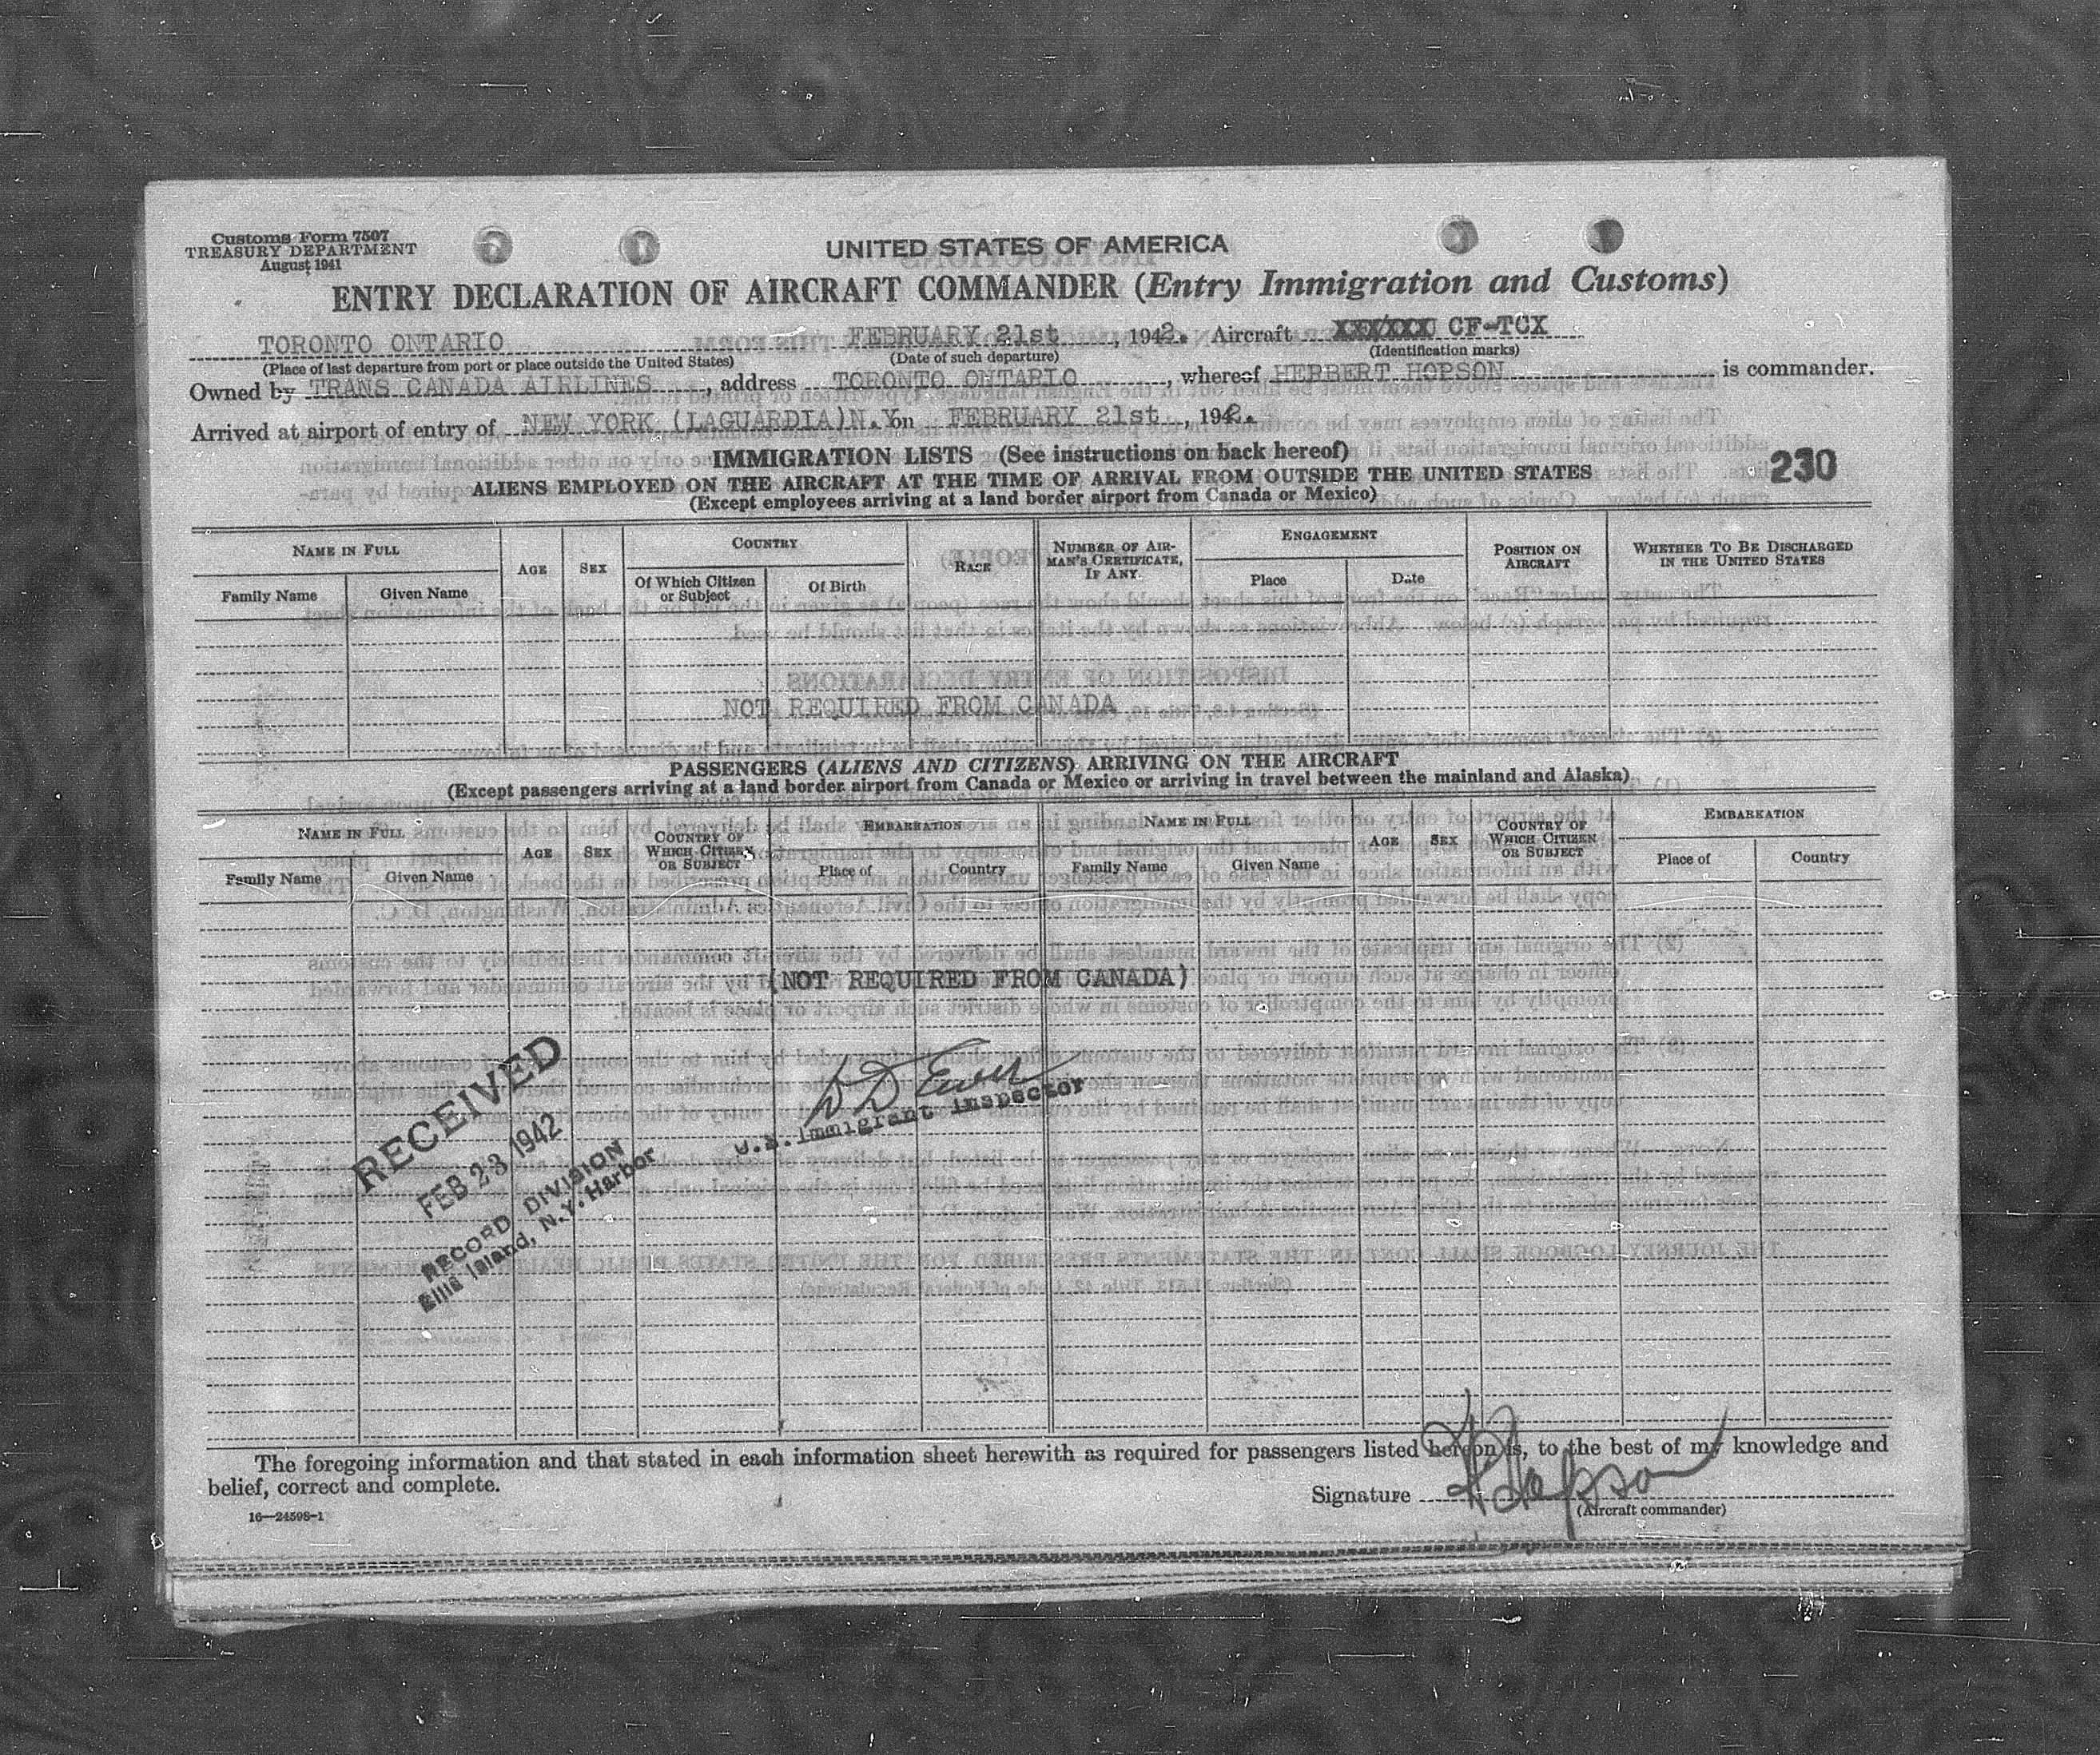 Customs Form 7507
TREASURY DEPARTMENT
August 1941
UNITED STATES OF AMERICA
ENTRY DECLARATION OF AIRCRAFT COMMANDER (Entry Immigration and Customs)
TORONTO ONTARIO FEBRUARY 21st, 1942. Aircraft CF-TCX
(Place of last departure from port or place outside the United States) (Date of such departure) (Identification marks)
Owned by TRANS CANADA AIRLINES, address TORONTO ONTARIO, whereof HERBERT HOPSON is commander.
Arrived at airport of entry of NEW YORK (LAGUARDIA)N.Y. on FEBRUARY 21st, 1942.
IMMIGRATION LISTS (See instructions on back hereof)
230
ALIENS EMPLOYED ON THE AIRCRAFT AT THE TIME OF ARRIVAL FROM OUTSIDE THE UNITED STATES
(Except employees arriving at a land border airport from Canada or Mexico)
NAME IN FULL AGE SEX COUNTRY RACE NUMBER OF AIRMAN'S CERTIFICATE, IF ANY ENGAGEMENT POSITION ON AIRCRAFT WHETHER TO BE DISCHARGED IN THE UNITED STATES
Family Name Given Name Of Which Citizen or Subject Of Birth Place Date
NOT REQUIRED FROM CANADA
PASSENGERS (ALIENS AND CITIZENS) ARRIVING ON THE AIRCRAFT
(Except passengers arriving at a land border airport from Canada or Mexico or arriving in travel between the mainland and Alaska)
NAME IN FULL AGE SEX COUNTRY OF WHICH CITIZEN OR SUBJECT EMBARKATION NAME IN FULL AGE SEX COUNTRY OF WHICH CITIZEN OR SUBJECT EMBARKATION
Family Name Given Name Place of Country Family Name Given Name Place of Country
(NOT REQUIRED FROM CANADA)
U.S. Immigrant Inspector
RECEIVED
FEB 23 1942
RECORD DIVISION
Ellis Island, N.Y. Harbor
The foregoing information and that stated in each information sheet herewith as required for passengers listed hereon is, to the best of my knowledge and
belief, correct and complete.
Signature H Hopson
(Aircraft commander)
16—24598-1